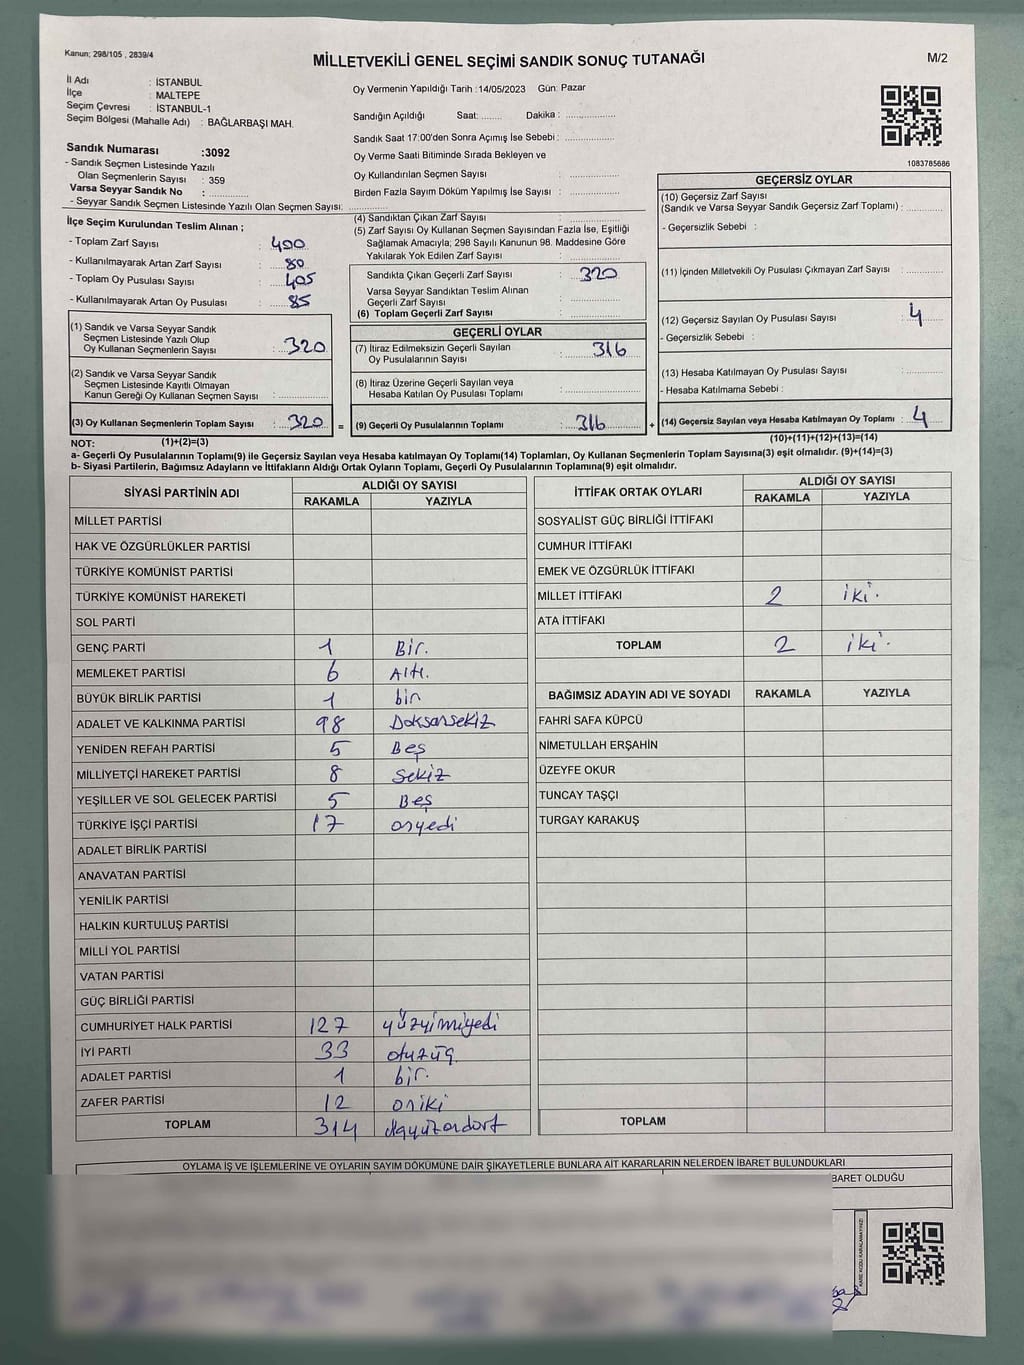 Kanun; 298/105 , 2839/4
MİLLETVEKİLİ GENEL SEÇİMİ SANDIK SONUÇ TUTANAĞI
M/2
İl Adı : İSTANBUL
İlçe : MALTEPE
Seçim Çevresi : İSTANBUL-1
Seçim Bölgesi (Mahalle Adı) : BAĞLARBAŞI MAH.
Sandık Numarası :3092
- Sandık Seçmen Listesinde Yazılı
Olan Seçmenlerin Sayısı : 359
Varsa Seyyar Sandık No :
- Seyyar Sandık Seçmen Listesinde Yazılı Olan Seçmen Sayısı:
Oy Vermenin Yapıldığı Tarih :14/05/2023 Gün: Pazar
Sandığın Açıldığı Saat: Dakika :
Sandık Saat 17:00'den Sonra Açımış İse Sebebi :
Oy Verme Saati Bitiminde Sırada Bekleyen ve
Oy Kullandırılan Seçmen Sayısı :
Birden Fazla Sayım Döküm Yapılmış İse Sayısı :
1083785686
İlçe Seçim Kurulundan Teslim Alınan ;
- Toplam Zarf Sayısı : 400
- Kullanılmayarak Artan Zarf Sayısı : 80
- Toplam Oy Pusulası Sayısı : 405
- Kullanılmayarak Artan Oy Pusulası : 85
(1) Sandık ve Varsa Seyyar Sandık
Seçmen Listesinde Yazılı Olup
Oy Kullanan Seçmenlerin Sayısı : 320
(2) Sandık ve Varsa Seyyar Sandık
Seçmen Listesinde Kayıtlı Olmayan
Kanun Gereği Oy Kullanan Seçmen Sayısı :
(3) Oy Kullanan Seçmenlerin Toplam Sayısı : 320 =
(4) Sandıktan Çıkan Zarf Sayısı :
(5) Zarf Sayısı Oy Kullanan Seçmen Sayısından Fazla İse, Eşitliği
Sağlamak Amacıyla; 298 Sayılı Kanunun 98. Maddesine Göre
Yakılarak Yok Edilen Zarf Sayısı :
Sandıkta Çıkan Geçerli Zarf Sayısı : 320
Varsa Seyyar Sandıktan Teslim Alınan
Geçerli Zarf Sayısı :
(6) Toplam Geçerli Zarf Sayısı :
GEÇERLİ OYLAR
(7) İtiraz Edilmeksizin Geçerli Sayılan
Oy Pusulalarının Sayısı : 316
(8) İtiraz Üzerine Geçerli Sayılan veya
Hesaba Katılan Oy Pusulası Toplamı :
(9) Geçerli Oy Pusulalarının Toplamı : 316 +
GEÇERSİZ OYLAR
(10) Geçersiz Zarf Sayısı
(Sandık ve Varsa Seyyar Sandık Geçersiz Zarf Toplamı) :
- Geçersizlik Sebebi :
(11) İçinden Milletvekili Oy Pusulası Çıkmayan Zarf Sayısı :
(12) Geçersiz Sayılan Oy Pusulası Sayısı : 4
- Geçersizlik Sebebi :
(13) Hesaba Katılmayan Oy Pusulası Sayısı :
- Hesaba Katılmama Sebebi :
(14) Geçersiz Sayılan veya Hesaba Katılmayan Oy Toplamı : 4
NOT: (1)+(2)=(3) (10)+(11)+(12)+(13)=(14)
a- Geçerli Oy Pusulalarının Toplamı(9) ile Geçersiz Sayılan veya Hesaba katılmayan Oy Toplamı(14) Toplamları, Oy Kullanan Seçmenlerin Toplam Sayısına(3) eşit olmalıdır. (9)+(14)=(3)
b- Siyasi Partilerin, Bağımsız Adayların ve İttifakların Aldığı Ortak Oyların Toplamı, Geçerli Oy Pusulalarının Toplamına(9) eşit olmalıdır.
SİYASİ PARTİNİN ADI ALDIĞI OY SAYISI
RAKAMLA YAZIYLA
MİLLET PARTİSİ
HAK VE ÖZGÜRLÜKLER PARTİSİ
TÜRKİYE KOMÜNİST PARTİSİ
TÜRKİYE KOMÜNİST HAREKETİ
SOL PARTİ
GENÇ PARTİ 1 Bir.
MEMLEKET PARTİSİ 6 Altı.
BÜYÜK BİRLİK PARTİSİ 1 bir
ADALET VE KALKINMA PARTİSİ 98 Doksansekiz
YENİDEN REFAH PARTİSİ 5 Beş
MİLLİYETÇİ HAREKET PARTİSİ 8 Sekiz
YEŞİLLER VE SOL GELECEK PARTİSİ 5 Beş
TÜRKİYE İŞÇİ PARTİSİ 17 onyedi
ADALET BİRLİK PARTİSİ
ANAVATAN PARTİSİ
YENİLİK PARTİSİ
HALKIN KURTULUŞ PARTİSİ
MİLLİ YOL PARTİSİ
VATAN PARTİSİ
GÜÇ BİRLİĞİ PARTİSİ
CUMHURİYET HALK PARTİSİ 127 yüzyimiyedi
İYİ PARTİ 33 otuzüç
ADALET PARTİSİ 1 bir.
ZAFER PARTİSİ 12 oniki
TOPLAM 314
İTTİFAK ORTAK OYLARI ALDIĞI OY SAYISI
RAKAMLA YAZIYLA
SOSYALİST GÜÇ BİRLİĞİ İTTİFAKI
CUMHUR İTTİFAKI
EMEK VE ÖZGÜRLÜK İTTİFAKI
MİLLET İTTİFAKI 2 iki.
ATA İTTİFAKI
TOPLAM 2 iki.
BAĞIMSIZ ADAYIN ADI VE SOYADI RAKAMLA YAZIYLA
FAHRİ SAFA KÜPCÜ
NİMETULLAH ERŞAHİN
ÜZEYFE OKUR
TUNCAY TAŞÇI
TURGAY KARAKUŞ
TOPLAM
OYLAMA İŞ VE İŞLEMLERİNE VE OYLARIN SAYIM DÖKÜMÜNE DAİR ŞİKAYETLERLE BUNLARA AİT KARARLARIN NELERDEN İBARET BULUNDUKLARI
BARET OLDUĞU
KARE KODU KARALAMAYINIZ!